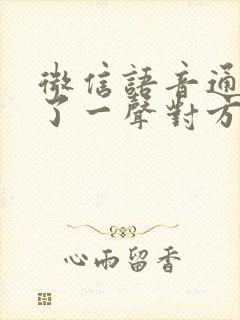 微信語音通
了一聲對方
心雨留香